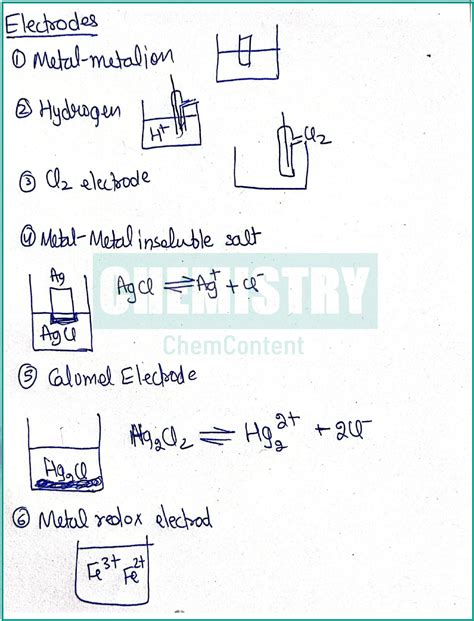 Electrodes
① Metal-metal ion
② Hydrogen
H⁺
Cl₂
③ Cl₂ electrode
④ Metal-Metal insoluble salt
Ag
AgCl ⇌ Ag⁺ + Cl⁻
AgCl
CHEMISTRY
ChemContent
⑤ Calomel Electrode
Hg₂Cl₂ ⇌ Hg₂²⁺ + 2Cl⁻
Hg₂Cl
⑥ Metal redox electrod
Fe³⁺ Fe²⁺